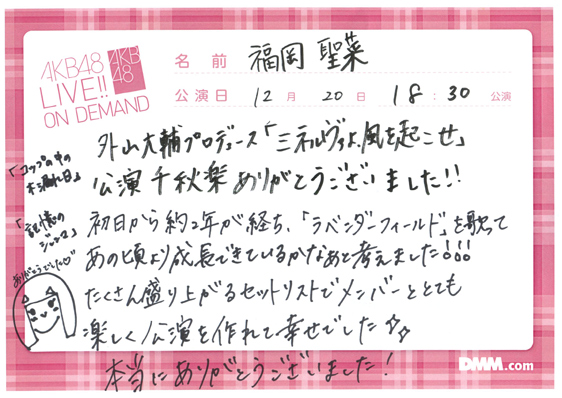 AKB48
LIVE!!
ON DEMAND
AKB
48
名前 福岡 聖菜
公演日 12月 20日 18:30 公演
外山大輔プロデュース「ミネルヴァよ、風を起こせ」
公演 千秋楽 ありがとうございました!!
「コップの中の
木漏れ日」
「記憶の
ジレンマ」
ありがとうでした♡
初日から約2年が経ち、「ラベンダーフィールド」を歌って
あの頃より成長できているかなあと考えました!!!
たくさん盛り上がるセットリストでメンバーととても
楽しく公演を作れて幸せでした☆☆
本当にありがとうございました!
DMM.com